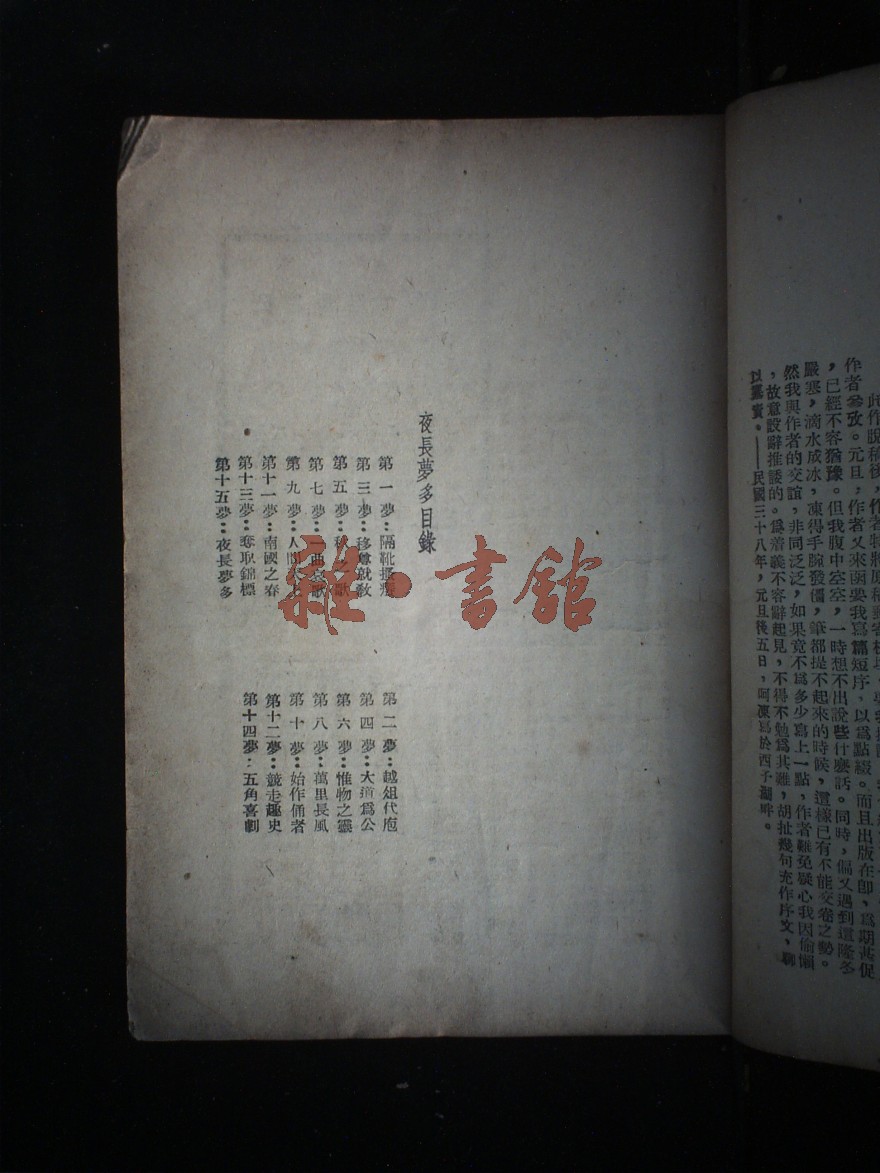 此作脫稿後，作者特將原稿郵寄
作者參攷。元旦，作者又來函要我寫篇短序，以爲點綴。而且出版在卽，爲期甚促
，已經不容猶豫。但我腹中空空，一時想不出說些什麽話。同時，偏又遇到這隆冬
嚴寒，滴水成冰，凍得手腕發僵，筆都提不起來的時候，這樣已有不能交卷之勢。
然我與作者的交誼，非同泛泛，如果竟不爲多少寫上一點，作者難免疑心我因偷懶
，故意設辭推諉的。爲着義不容辭起見，不得不勉爲其難，胡扯幾句充作序文，聊
以塞責。——民國三十八年，元旦後五日，呵凍寫於西子湖畔。
夜長夢多目錄
第一夢：隔靴搔癢
第二夢：越俎代庖
第三夢：移尊就敎
第四夢：大道爲公
第五夢：秋之歌
第六夢：惟物之靈
第七夢：一曲哀歌
第八夢：萬里長風
第九夢：人間天上
第十夢：始作俑者
第十一夢：南國之春
第十二夢：競走趣史
第十三夢：奪取錦標
第十四夢：五角喜劇
第十五夢：夜長夢多
雜·書館